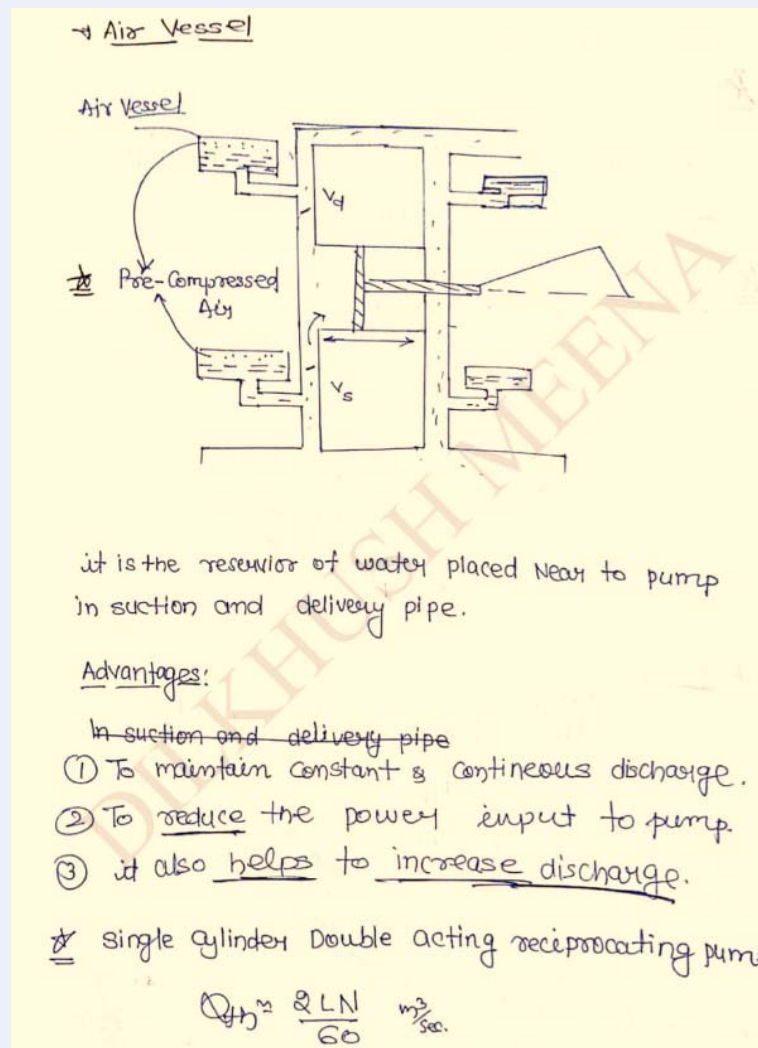 → Air Vessel
Air Vessel
Vd
☆ Pre-Compressed
Air
Vs
it is the reservior of water placed Near to pump
in suction and delivery pipe.
Advantages:
In suction and delivery pipe
① To maintain constant & contineous discharge.
② To reduce the power input to pump.
③ it also helps to increase discharge.
☆ single cylinder Double acting reciprocating pum
Qth = 2LN/60 m³/sec.
DILKHUSH MEENA